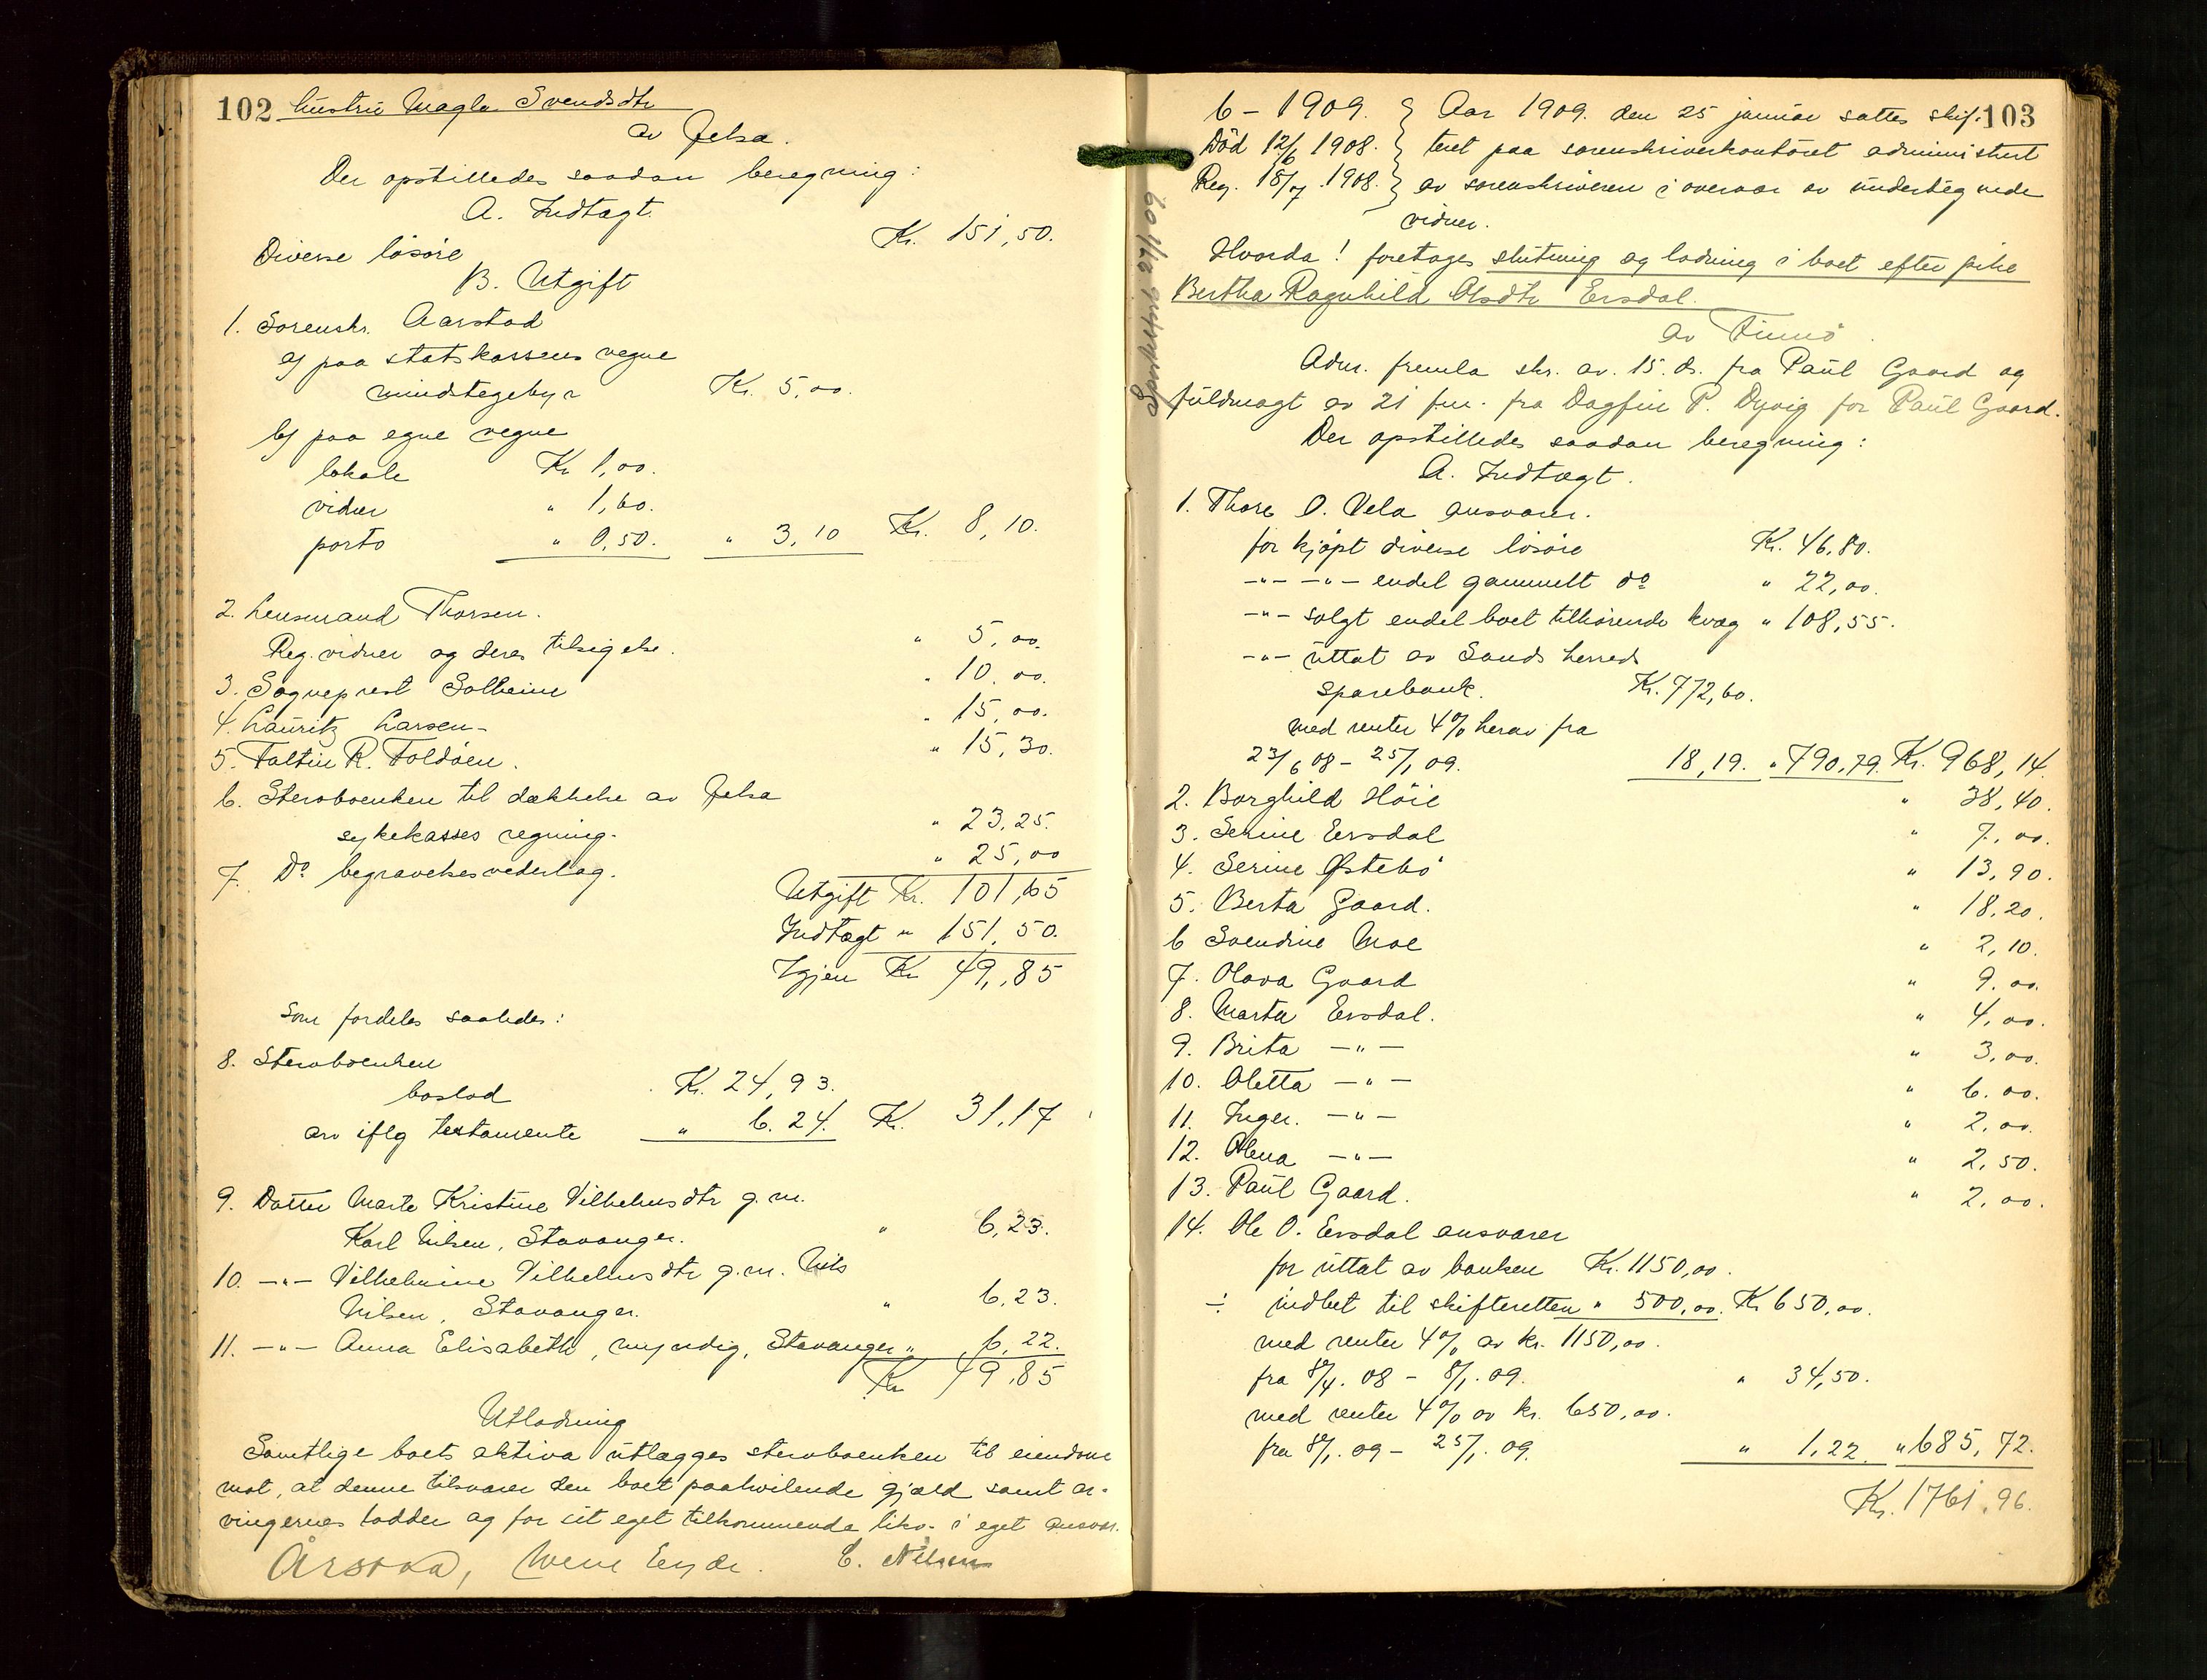 102 hustru Magla Svendsdtr
av Jelsa.
Der opstilledes saadan beregning:
A. Indtægt.
Diverse løsøre Kr. 151,50.
B. Utgift
1. Sorenskr. Aarstad
a) paa statskassens vegne
mindstegebyr Kr. 5,00.
b) paa egne vegne
lokale Kr 1,00.
vidner " 1,60.
porto " 0,50. " 3,10 Kr. 8,10.
2. Lensmand Thorsen.
Reg. vidner og deres tilsigelse. " 5,00.
3. Sogneprest Solheim " 10.00.
4. Lauritz Larsen - " 15,00.
5. Taltin R. Foldøen. " 15,30.
6. Stervboenken til dækkelse av Jelsa
sykekasses regning. " 23,25.
7. Do begravelsesvederlag. " 25,00
Utgift Kr. 101,65
Indtægt " 151,50.
Igjen Kr 49,85
som fordeles saaledes:
8. Stervboenken
boslod Kr. 24,93.
arv iflg testamente " 6.24. Kr. 31,17
9. Datter Marte Kristine Vilhelmsdtr g.m.
Karl Nilsen, Stavanger. " 6,23.
10. -"- Vilhelmine Vilhelmsdtr g.m. Nils
Nilsen, Stavanger. " 6,23.
11. -"- Anna Elisabeth, myndig, Stavanger " 6,22.
Kr 49,85
Utlodning
Samtlige boets aktiva utlægges stervboenken til eiendom
mot, at denne tilsvarer den boet paahvilende gjæld samt ar-
vingernes lodder og for sit eget tilkommende likv. i eget ansvar.
Årstad, E. Nilsen
103
6 - 1909. Aar 1909. den 25 januar sattes skif-
Død 12/6 1908. teret paa sorenskriverkontoret administrert
Reg. 18/7 1908. av sorenskriveren i overvær av undertegnede
vidner.
Hvorda! foretages slutning og lodning i boet efter pike
Bertha Ragnhild Olsdtr Ersdal.
av Finnø.
Adm. fremla skr. av. 15. ds. fra Paul Gaard og
fuldmagt av 21 f.m. fra Dagfin P. Dyvig for Paul Gaard.
Der opstilledes saadan beregning:
A. Indtægt.
1. Thore O. Vela ansvarer.
for kjøpt diverse løsøre Kr. 46,80.
-"- -"- endel gammelt do " 22,00.
-"- solgt endel boet tilhørende kvæg " 108,55.
-"- uttat av Sands herreds
sparebank. Kr. 772,60.
med renter 4% herav fra
23/6 08 - 25/1 09. 18,19. " 790,79. Kr. 968,14.
2. Borghild Höie " 38,40.
3. Serine Ersdal " 7,00.
4. Serine Østebø " 13,90.
5. Berta Gaard. " 18,20.
6 Svendine Moe " 2,10.
7. Olava Gaard " 9.00.
8. Marta Ersdal. " 4,00.
9. Brita -"- " 3,00.
10. Oletta -"- " 6.00.
11. Inger. -"- " 2,00.
12. Olena -"- " 2,50.
13. Paul Gaard. " 2,00.
14. Ole O. Ersdal ansvarer
for uttat av banken Kr. 1150,00.
÷ indbet til skifteretten " 500,00. Kr 650,00.
med renter 4% av kr. 1150,00.
fra 8/4. 08 - 8/1. 09. " 34,50.
med renter 4% av kr. 650,00.
fra 8/1. 09 - 25/1. 09. " 1,22 " 685,72.
Kr. 1761,96.